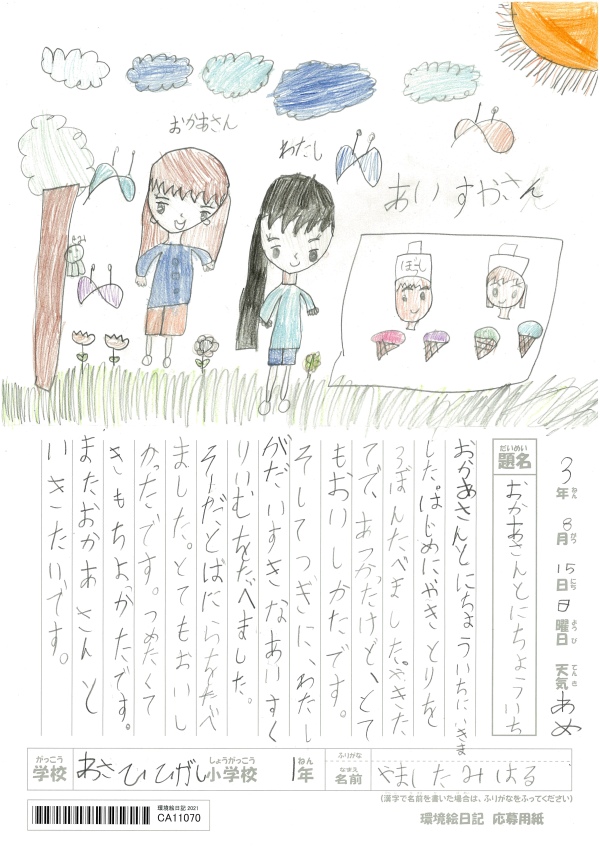 おかあさん
わたし
あいすやさん
ぼうし
3年 8月 15日 日曜日 天気 あめ
ねん がつ にち ようび てんき
だいめい
題名 おかあさんとにちょういち
おかあさんとにちょういちにいきま
した。はじめにやきとりを
3ぼんたべました。やきた
てで、あつかたけど、とて
もおいしかたです。
そしてつぎに、わたし
がだいすきなあいすく
りいむをたべました。
そーだとばにらをたべ
ました。とてもおいし
かったです。つめたくて
きもちよかたです。
またおかあさんと
いきたいです。
がっこう しょうがっこう ねん ふりがな
学校 あさひひがし小学校 1年
なまえ
名前 やましたみはる
(漢字で名前を書いた場合は、ふりがなをふってください)
環境絵日記 2021
CA11070
環境絵日記 応募用紙